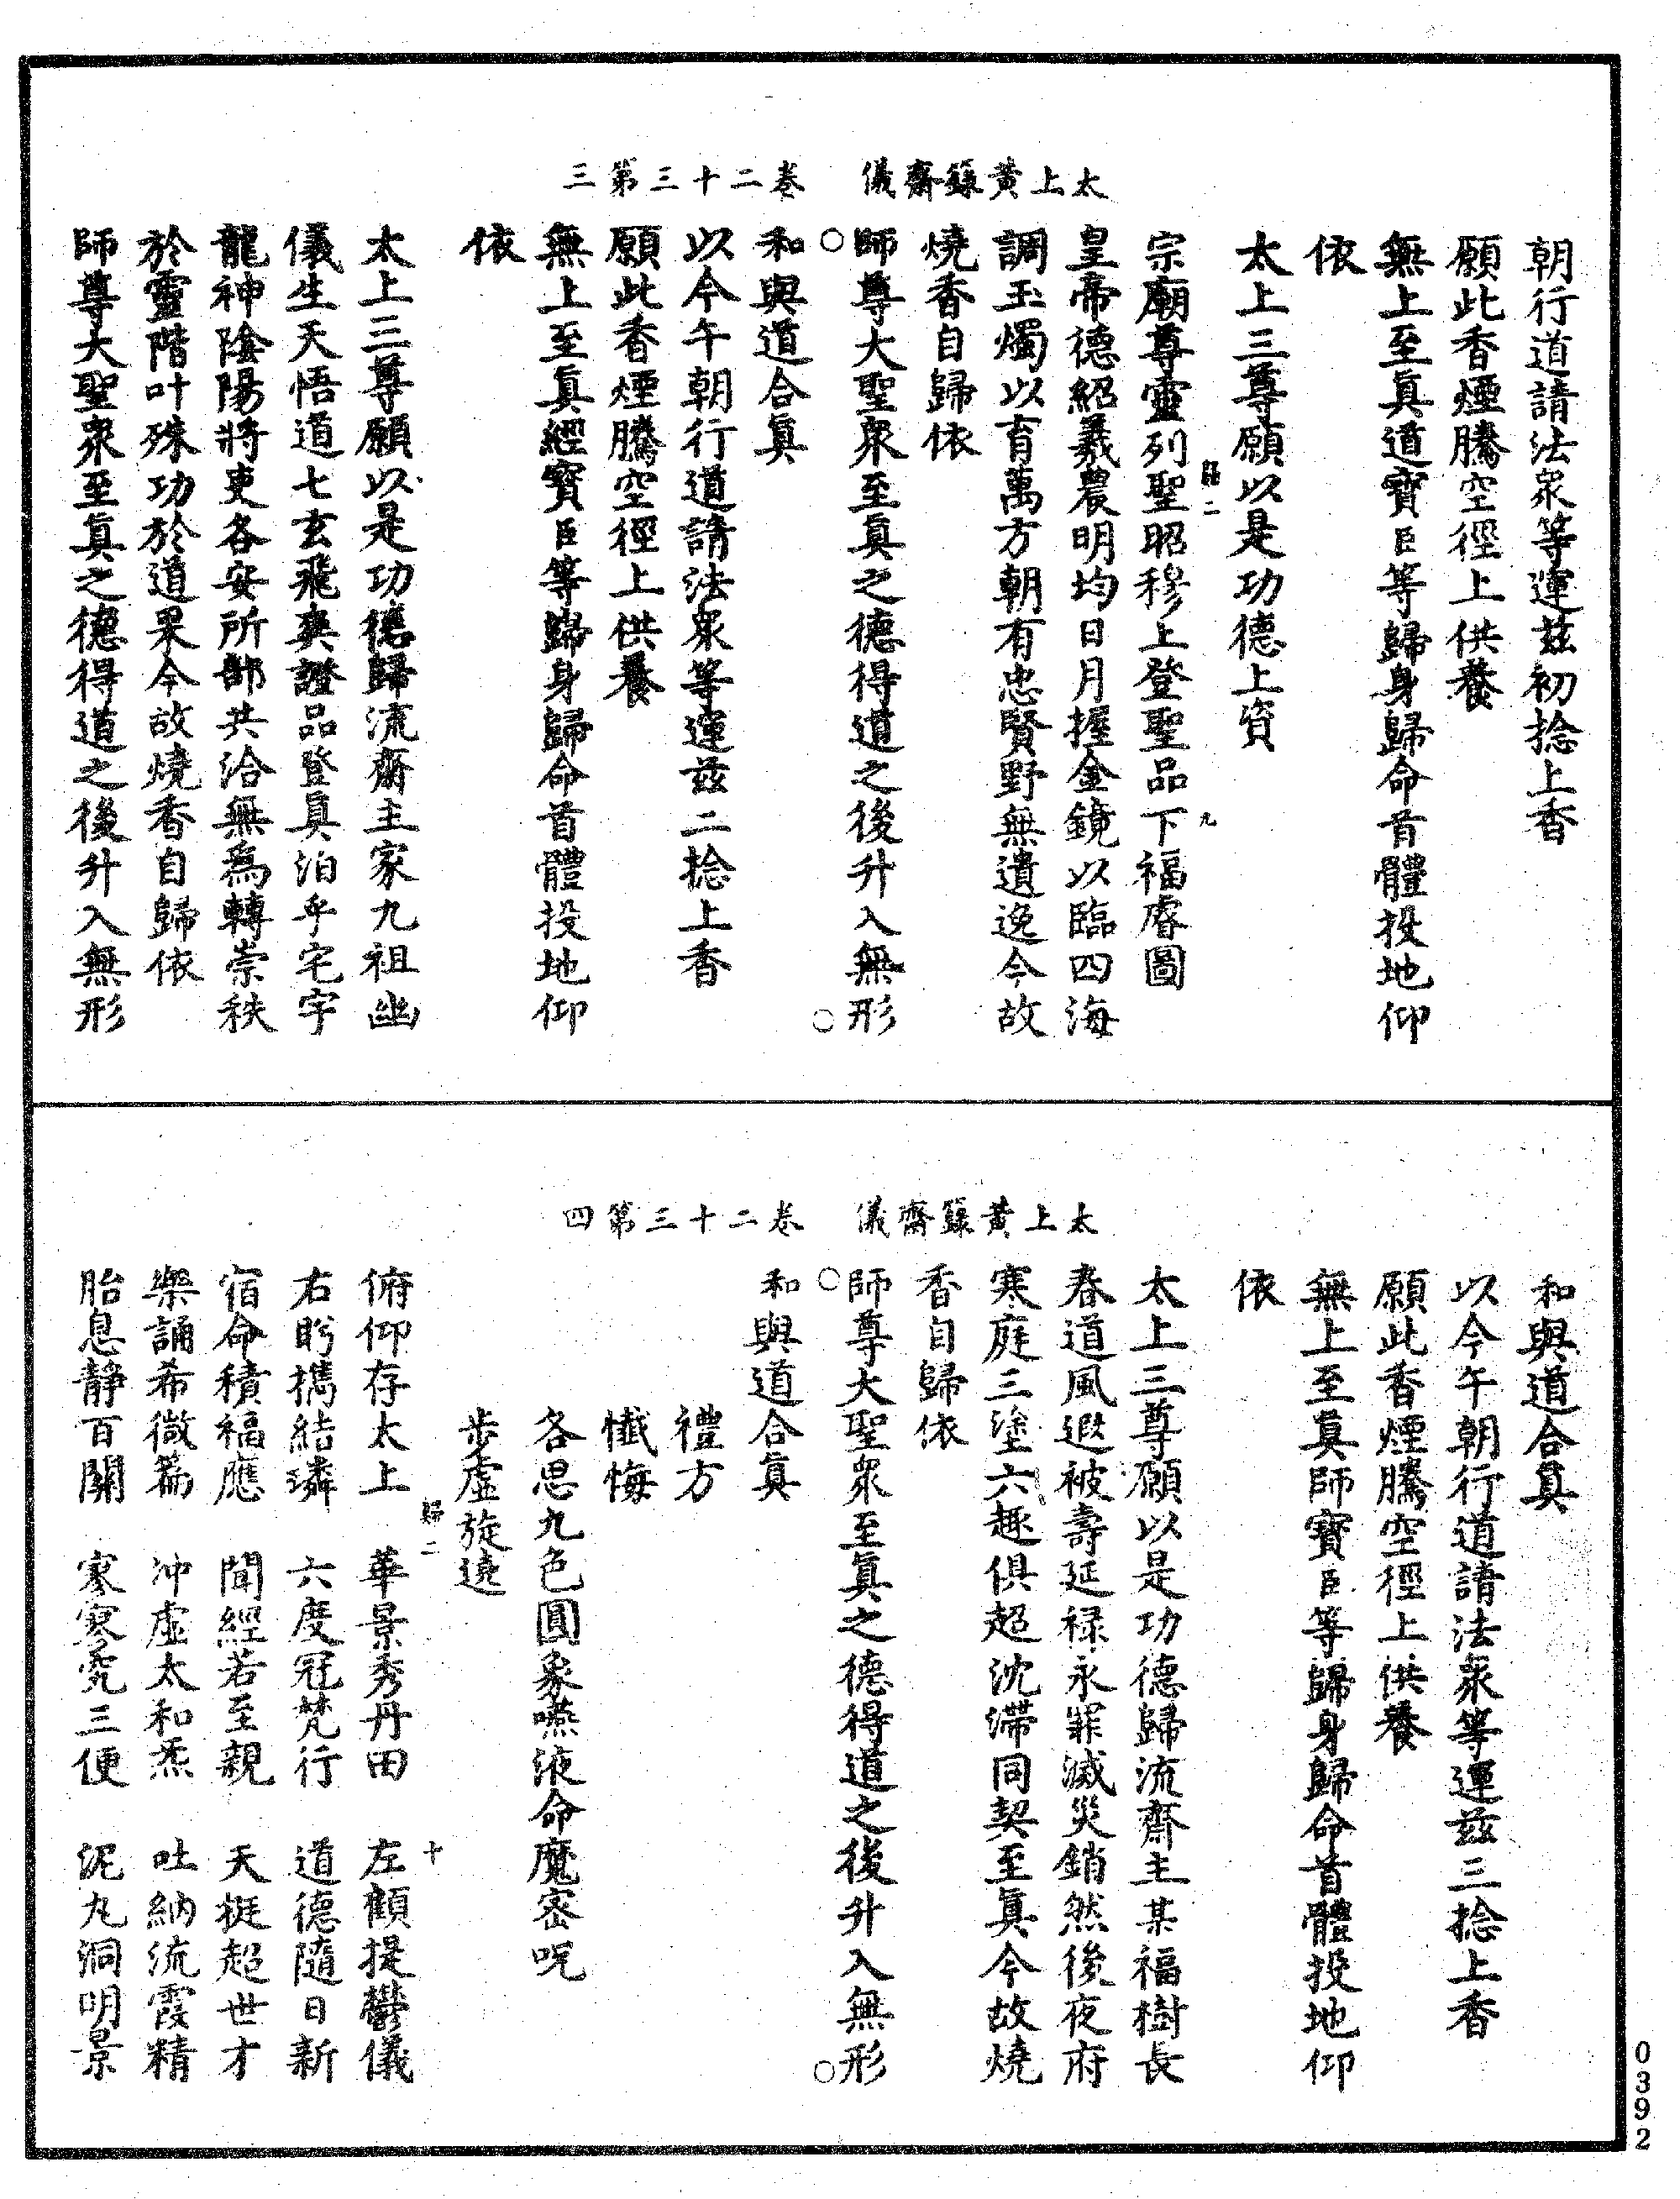 太上黃籙齋儀　卷二十三第三
朝行道請法眾等運茲初捻上香
願此香煙騰空徑上供養
無上至真道寶臣等歸身歸命首體投地仰
依
太上三尊願以是功德上資
歸二　九
宗廟尊靈列聖昭穆上登聖品下福睿圖
皇帝德紹羲農明均日月握金鏡以臨四海
調玉燭以育萬方朝有忠賢野無遺逸今故
燒香自歸依
師尊大聖眾至真之德得道之後升入無形
○　○
和與道合真
以今午朝行道請法眾等運茲二捻上香
願此香煙騰空徑上供養
無上至真經寶臣等歸身歸命首體投地仰
依
太上三尊願以是功德歸流齋主家九祖幽
儀生天悟道七玄飛爽證品登真洎乎宅宇
龍神陰陽將吏各安所部共洽無為轉崇秩
於靈階叶殊功於道果今故燒香自歸依
師尊大聖眾至真之德得道之後升入無形
太上黃籙齋儀　卷二十三第四
和與道合真
以今午朝行道請法眾等運茲三捻上香
願此香煙騰空徑上供養
無上至真師寶臣等歸身歸命首體投地仰
依
太上三尊願以是功德歸流齋主某福樹長
春道風遐被壽延祿永罪滅災銷然後夜府
寒庭三塗六趣俱超沈滯同契至真今故燒
香自歸依
師尊大聖眾至真之德得道之後升入無形
○　○
和與道合真
禮方
懺悔
各思九色圓象嚥液命魔密呪
步虛旋遶
歸二　十
俯仰存太上　華景秀丹田　左顧提鬱儀
右盼攜結璘　六度冠梵行　道德隨日新
宿命積福應　聞經若至親　天挺超世才
樂誦希微篇　沖虛太和炁　吐納流霞精
胎息靜百關　寥寥究三便　泥丸洞明景
0392